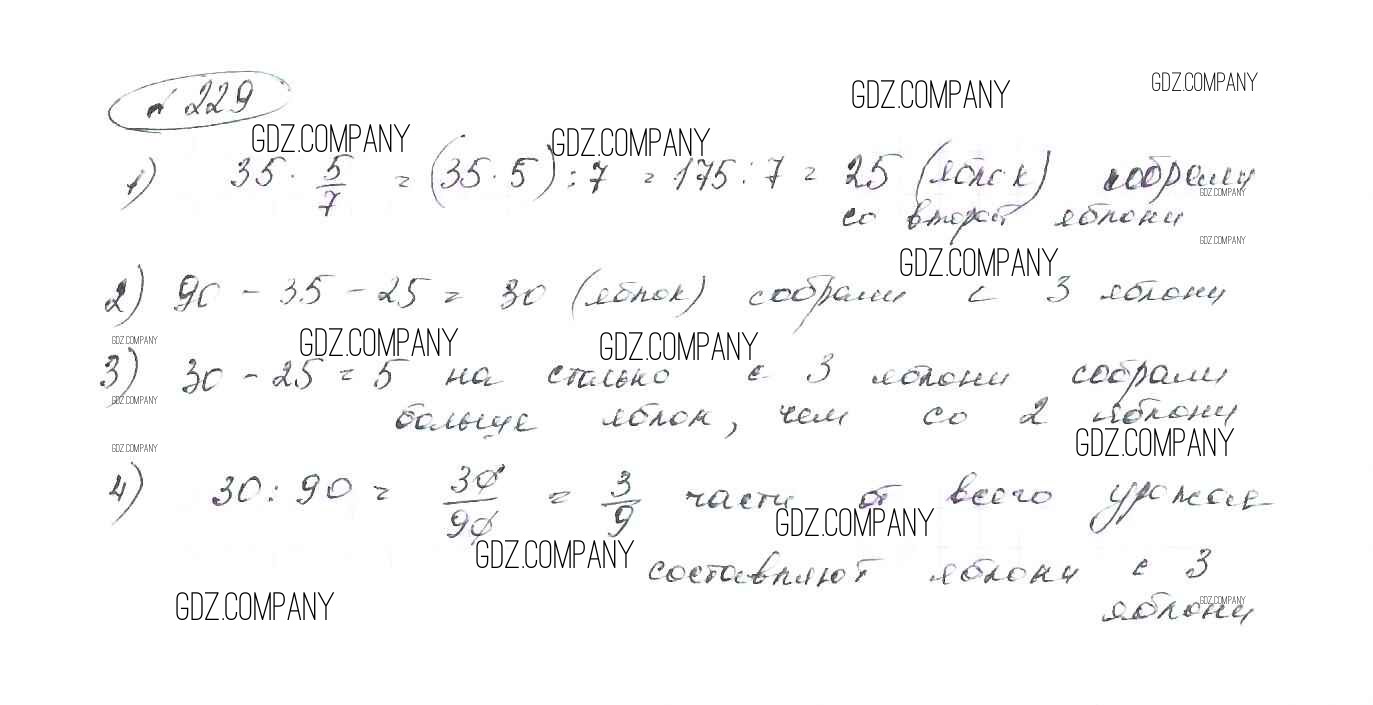 № 229
GDZ.COMPANY GDZ.COMPANY
GDZ.COMPANY GDZ.COMPANY
1) 35 · 5/7 = (35 · 5) : 7 = 175 : 7 = 25 (яблок) собрали
GDZ.COMPANY
со второй яблони
GDZ.COMPANY
GDZ.COMPANY
2) 90 - 35 - 25 = 30 (яблок) собрали с 3 яблони
GDZ.COMPANY GDZ.COMPANY GDZ.COMPANY
3) 30 - 25 = 5 на столько с 3 яблони собрали
GDZ.COMPANY
больше яблок, чем со 2 яблони
GDZ.COMPANY GDZ.COMPANY
4) 30 : 90 = 30/90 = 3/9 части от всего урожая
GDZ.COMPANY
GDZ.COMPANY
составляют яблони с 3
GDZ.COMPANY GDZ.COMPANY
яблони